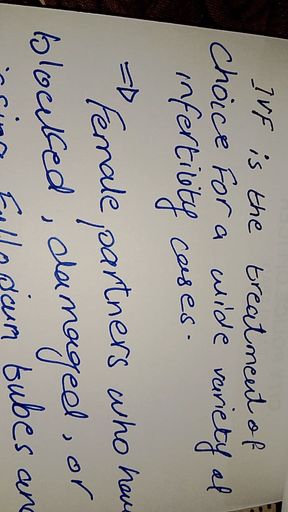 IVF is the treatment of
choice for a wide variety of
infertility cases.
⇒ Female partners who have
blocked, damaged, or
Fallopian tubes and